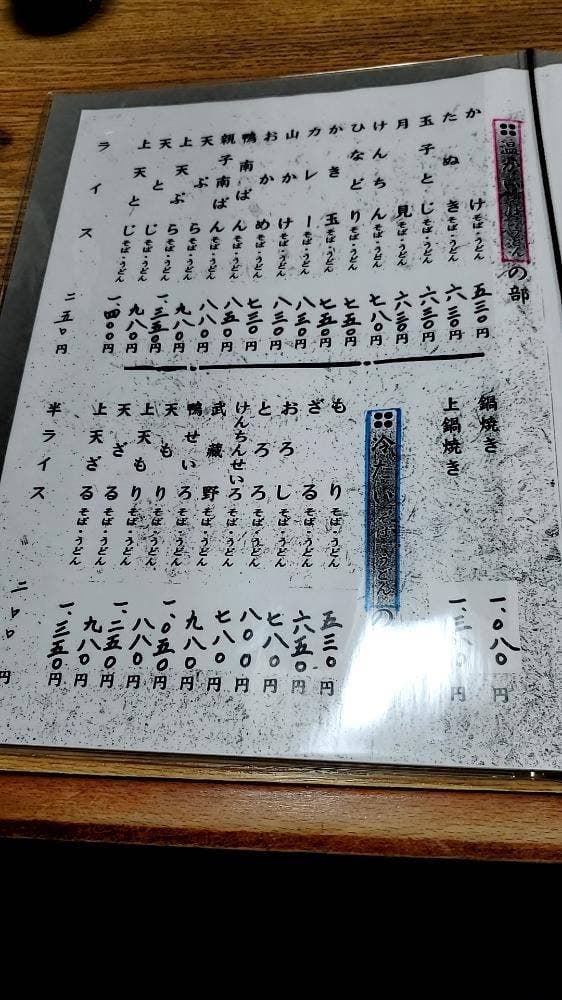 温かいそば・うどんの部
かけ そば・うどん 五三〇円
たぬき そば・うどん 六三〇円
玉子とじ そば・うどん 六三〇円
月見 そば・うどん 六三〇円
けんちん そば・うどん 七八〇円
ひなどり そば・うどん 七五〇円
かき玉 そば・うどん 七五〇円
カレー そば・うどん 八三〇円
山かけ そば・うどん 八三〇円
おかめ そば・うどん 七三〇円
鴨南ばん そば・うどん 八五〇円
親子南ばん そば・うどん 八八〇円
天ぷら そば・うどん 九八〇円
上天ぷら そば・うどん 一、三五〇円
天とじ そば・うどん 九八〇円
上天とじ そば・うどん 一、四〇〇円
ライス 二五〇円
鍋焼き 一、〇八〇円
上鍋焼き 一、三八〇円
冷たいそば・うどんの
もり そば・うどん 五三〇円
ざる そば・うどん 六五〇円
おろし そば・うどん 七八〇円
とろろ そば・うどん 八〇〇円
けんちんせいろ そば・うどん 七八〇円
武蔵野 そば・うどん 九八〇円
鴨せいろ そば・うどん 一、〇五〇円
天もり そば・うどん 八八〇円
上天もり そば・うどん 一、二五〇円
天ざる そば・うどん 九八〇円
上天ざる そば・うどん 一、三五〇円
半ライス 二〇〇円